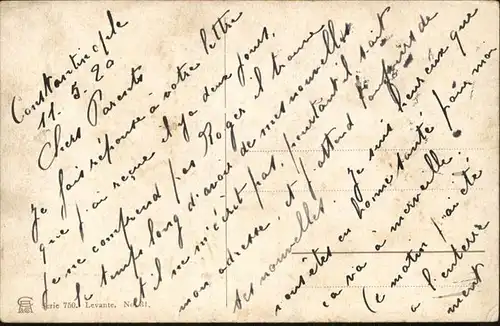 Constantinople
11.5.20
Chers Parents
Je fais réponse à votre lettre
que j'ai reçue il y a deux jours,
je ne comprend pas Roger il trouve
le temps long d'avoir de mes nouvelles
et il ne m'écrit pas, pourtant il sait
mon adresse, et j'attend toujours de
ses nouvelles. Je suis heureux que
vous êtes en bonne santé pour moi
ça va à merveille.
Ce matin j'ai été
à l'enterre
ment
Serie 750. Levante. No.